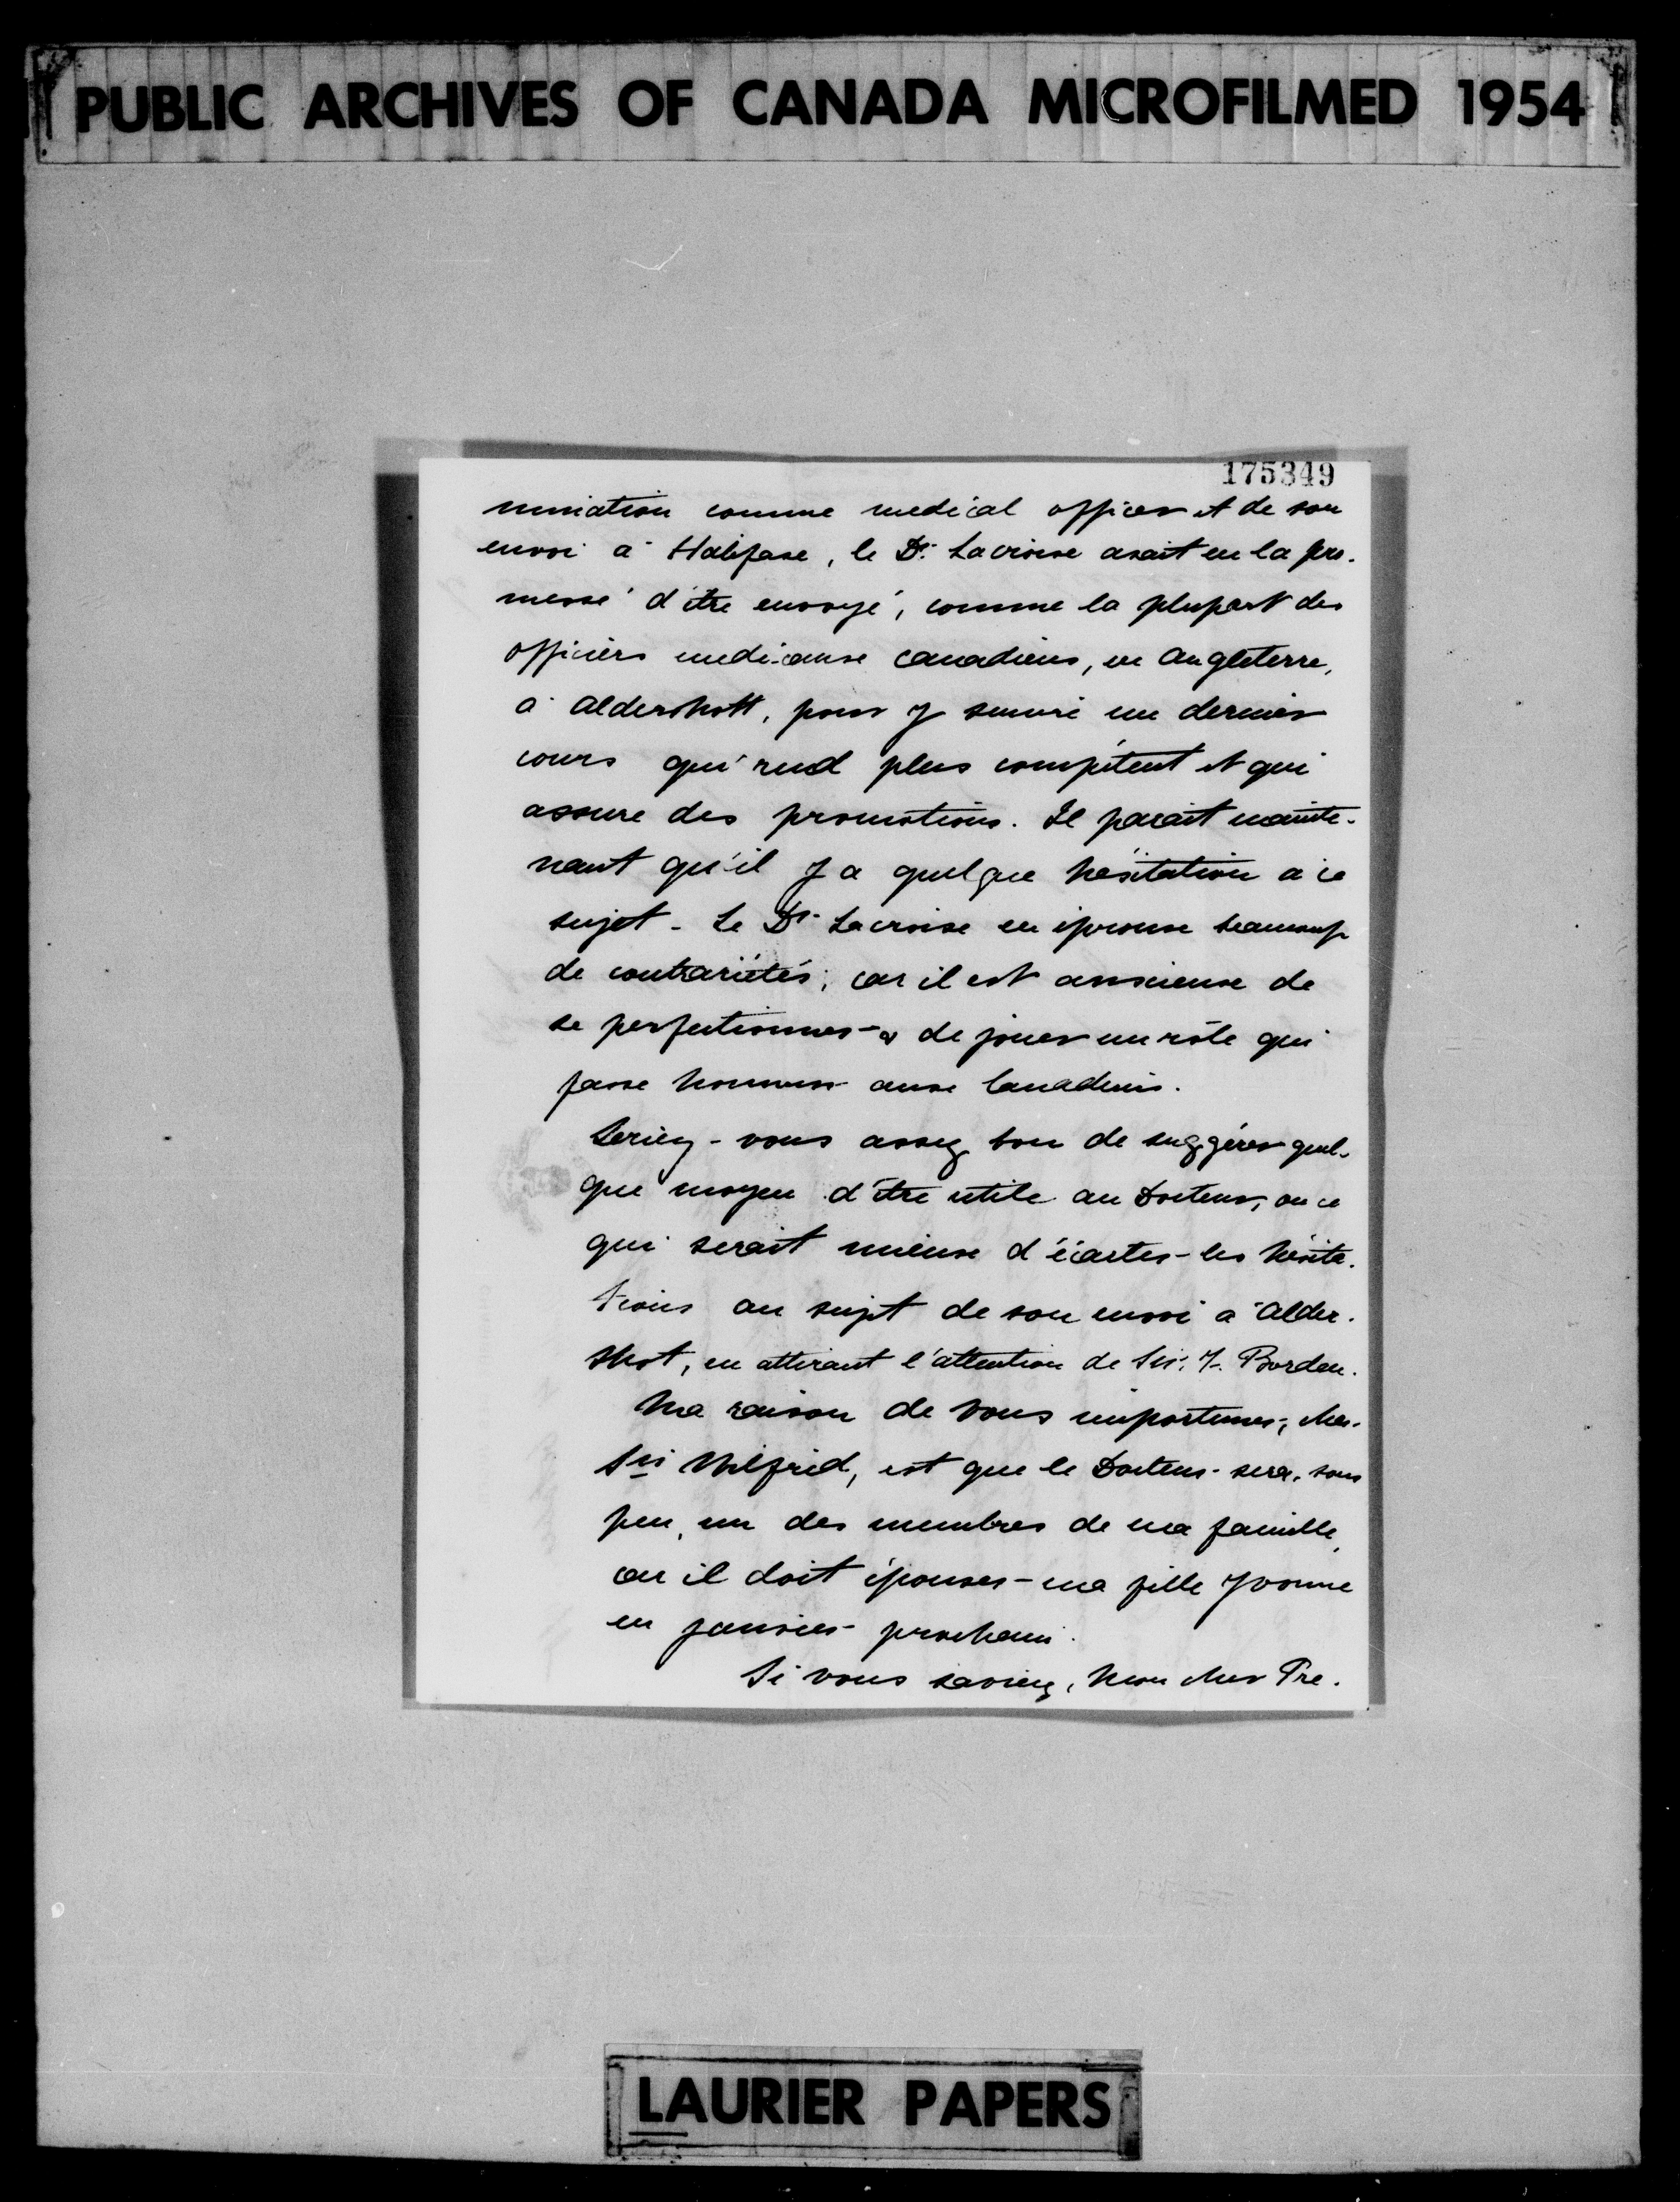 PUBLIC ARCHIVES OF CANADA MICROFILMED 1954
175349
mination comme medical officer et de son
envoi à Halifax, le Dr. Lacroix avait eu la pro-
messe d'être envoyé, comme la plupart des
officiers medicaux canadiens, en Angleterre,
à Aldershott, pour y suivre un dernier
cours qui rend plus compétent et qui
assure des promotions. Il parait mainte-
nant qu'il y a quelque hésitation à ce
sujet - Le Dr Lacroix en éprouve beaucoup
de contrariétés; car il est anxieux de
se perfectionner & de jouer un rôle qui
fasse honneur aux Canadiens.
Seriez-vous assez bon de suggérer quel-
que moyen d'être utile au Docteur, ou ce
qui serait mieux d'écarter les hésita-
tions au sujet de son envoi à Alder-
shot, en attirant l'attention de Sir F. Borden.
Ma raison de vous importuner, cher
Sir Wilfrid, est que le Docteur sera, sous
peu, un des membres de ma famille,
car il doit épouser ma fille Yvonne
en janvier prochain.
Si vous saviez, Mon cher Pre-
LAURIER PAPERS